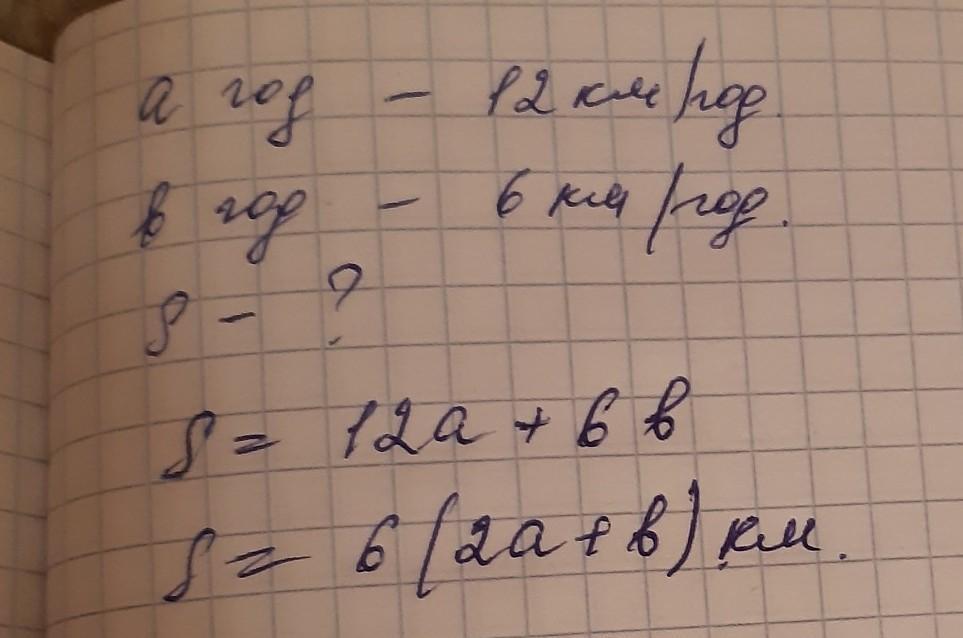 a год - 12 км/год.
в год - 6 км/год.
S - ?
S = 12a + 6в
S = 6(2a+в) км.